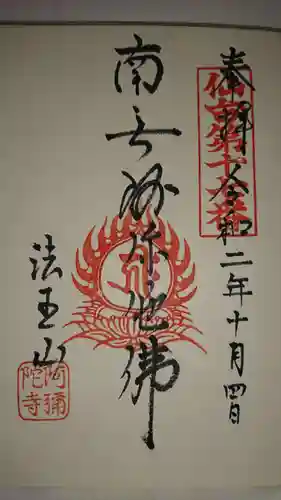 奉拝 令和二年十月四日
第十番
南无阿弥陀佛
法王山
阿彌
陀寺